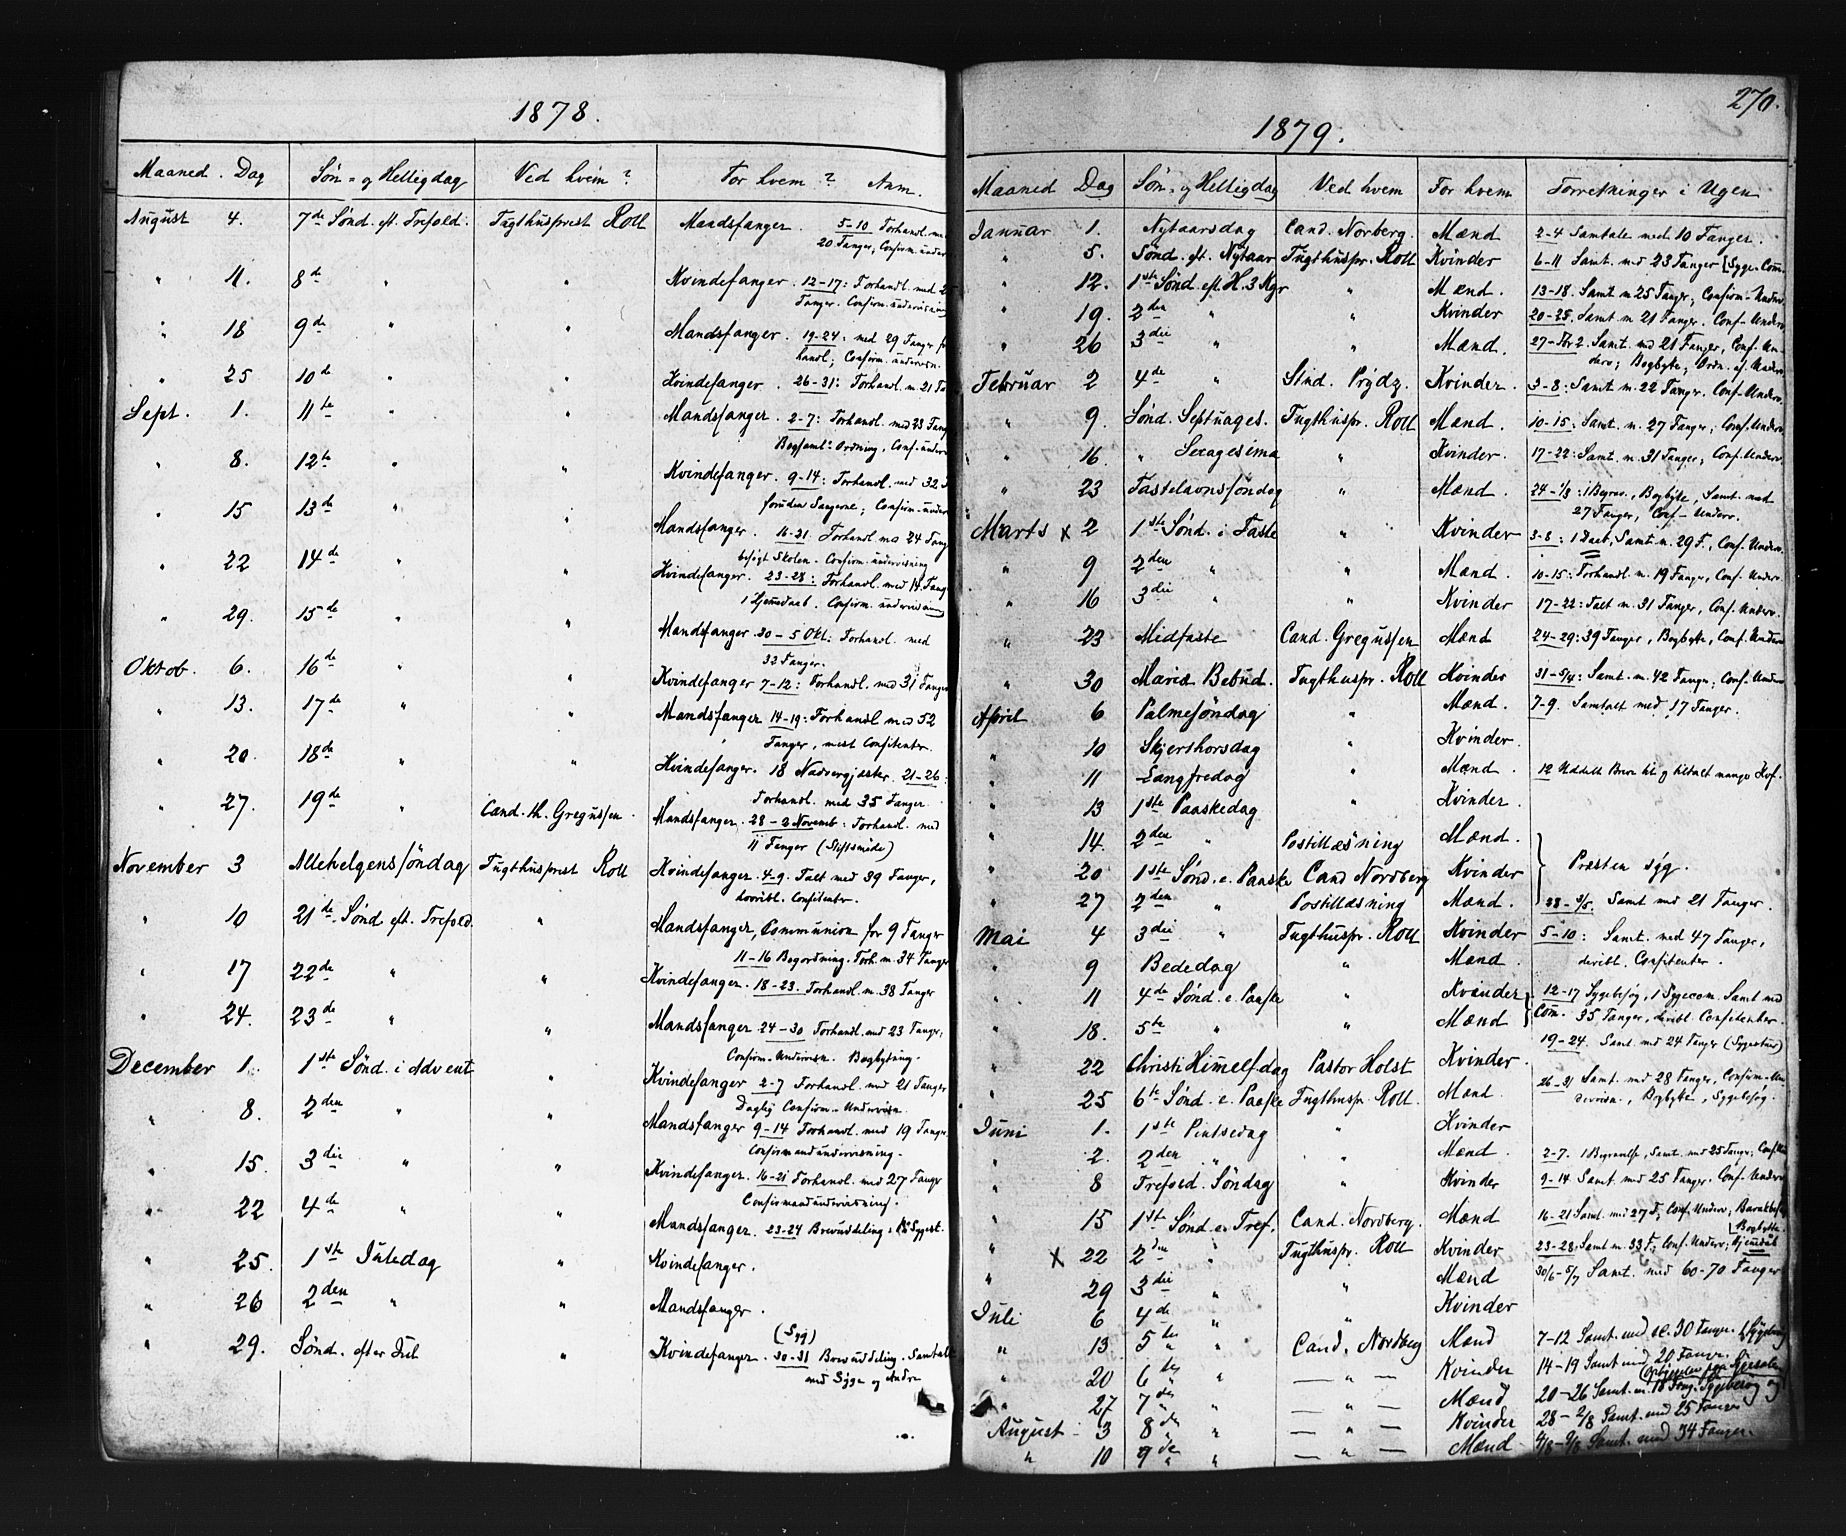 1878.
Maaned. Dag Søn- og Helligdag Ved hvem? For hvem? Anm.
August 4. 7de Sønd. eft. Trefold. Tugthusprest Roll Mandsfanger. 5-10 Forhandl. m
20 Fanger, Confirm. under
" 11. 8de " " Kvindefanger. 12-17: Forhandl. med 2
Fanger. Confirm. undervisning
" 18 9de " " Mandsfanger. 19-24: med 29 Fanger f
handl; Confirm. undervisn.
" 25 10de " " Kvindefanger. 26-31: Forhandl. m. 21 Fa
Sept. 1. 11te " " Mandsfanger. 2-7: Forhandl. med 23 Fang
Bogsaml. Ordning, Conf. under
" 8. 12te " " Kvindefanger. 9-14: Forhandl. med 32
foruden Sangerne; Confirm-under
" 15 13de " " Mandsfanger. 16-21. Forhandl. m 24 Fang
besøgt Skolen. Confirm. undervisning
" 22 14de " " Kvindefanger. 23-28: Forhandl. med 19 Fang
1 Hjemedaab. Confirm. undervisning
" 29. 15de " " Mandsfanger. 30-5 Okt: Forhandl. med
32 Fanger.
Oktob. 6. 16de " " Kvindefanger 7-12: Forhandl. med 31 Fanger
" 13. 17de " " Mandsfanger 14-19: Forhandl med 52
Fanger, mest Confitenter.
" 20. 18de " " Kvindefanger. 18 Nadvergjæster. 21-26:
Forhandl. med 35 Fanger
" 27. 19de " Cand. th. Gregussen. Mandsfanger. 28-2 Novemb: Forhandl. med
11 Fanger (Stiftsmøde)
November 3 Allehelgenssöndag Tugthusprest Roll Kvindefanger. 4-9. Talt med 39 Fanger,
hvoribl. Confitenter.
" 10 21de Sønd. eft. Trefold. " Mandsfanger, Communion for 9 Fanger
11-16 Bogordning. Forh. m. 34 Fanger
" 17 22de " " Kvindefanger. 18-23. Forhandl. m. 38 Fanger
" 24. 23de " " Mandsfanger. 24-30 Forhandl. med 23 Fanger;
Confirm-Undervisn. Bogbytning.
December 1. 1ste Sønd. i Advent " Kvindefanger 2-7 Forhandl. med 21 Fanger
Daglig Confirm.-Undervisn.
" 8. 2den " " Mandsfanger 9-14 Forhandl. med 19 Fanger
Confirmandundervisning.
" 15. 3die " " Kvindefanger. 16-21 Forhandl. med 27 Fangr
Confirmandundervisning.
" 22 4de " " Mandsfanger. 23-24 Brevuddeling, Sygest.
" 25. 1ste Juledag " Kvindefanger.
" 26 2den " " Mandsfanger.
" 29. Sönd. efter Jul " Kvindefanger. (Syg) 30-31 Brevuddeling. Samtale
med Syge og Andre
270.
1879.
Maaned Dag Søn- og Helligdag Ved hvem For hvem Forretninger i Ugen
Januar 1. Nytaarsdag Cand. Norberg. Mænd 2-4 Samtale med 10 Fanger.
" 5. Sønd. eft. Nytaar Tugthuspr. Roll Kvinder 6-11 Samt. med 23 Fanger [Syge-Com.
" 12. 1ste Sønd eft H. 3 Kgr " Mænd. 13-18. Samt m 25 Fanger; Confirm-Underv.
" 19. 2den " " Kvinder 20-25. Samt. m 21 Fanger. Conf-Underv.
" 26 3die " " Mænd. 27-Fbr 2. Samt. med 21 Fanger, Conf-Un-
derv; Bogbytte; Ordn. af
Februar 2 4de " Stud. Prydz. Kvinder. 3-8: Samt m. 22 Fanger. Conf-Underv.
" 9. Sønd. Septuages. Tugthuspr. Roll Mænd. 10-15: Samt. m. 27 Fanger; Conf-Underv.
" 16. " Sexagesima " Kvinder. 17-22: Samt. m. 31 Fanger; Conf. Underv.
" 23 Fastelavnssöndag " Mænd. 24-1/3: 1 Begrav., Bogbytte, Samt. med
27 Fanger, Conf-Underv.
Marts x 2 1ste Sønd. i Faste " Kvinder 3-8: 1 Daab, Samt m. 29 F., Conf. Underv.
" 9 2den " " Mænd. 10-15: Forhandl m. 19 Fanger, Conf. Underv.
" 16 3die " " Kvinder 17-22: Talt m. 31 Fanger, Conf. Underv.
" 23 Midfaste Cand. Gregussen Mænd 24-29: 39 Fanger, Bogbytte, Conf-Underv
" 30 Mariæ Bebud. Tugthuspr. Roll Kvinder 31-5/4: Samt. m. 42 Fangr; Conf. Underv
April 6 Palmesöndag " Mænd. 7-9. Samtalt med 17 Fanger.
" 10 Skjærthorsdag " Kvinder.
" 11 Langfredag " Mænd. 12 Uddelt Breve til og tiltalt mange Kvf.
" 13 1ste Paaskedag " Kvinder.
" 14. 2den " Postillæsning Mænd.
Præsten syg.
" 20 1ste Sønd. e. Paaske Cand Nordberg Kvinder
" 27 2den " Postillæsning Mænd. 28-3/5. Samt med 21 Fanger.
Mai 4 3die " Tugthuspr. Roll Kvinder 5-10: Samt. med 47 Fanger,
" 9 Bededag " Mænd. deribl. Confitenter.
" 11 4de Sønd. e. Paaske " Kvinder 12-17 Sygebesøg, 1 Sygecom. Samt med
" 18. 5te " " Mænd Com. 35 Fanger, deribl. Confitenter.
19-24. Samt. med 24 Fanger
" 22 Christi Himmelf.dag Pastor Holst Kvinder.
" 25 6te Sønd. e. Paaske Tugthuspr. Roll. Mænd. 26-31 Samt. med 28 Fanger, Confirm-Un-
dervisn., Bogbytte, Sygebesøg.
Juni 1. 1ste Pintsedag " Kvinder
" 2. 2den " " Mænd. 2-7. 1 Begravelse, Samt. med 25 Fanger, Conf.
" 8 Trefold. Söndag " Kvinder 9-14 Samt. med 25 Fanger. Conf-Underv
" 15 1ste Sønd e. Tref. Cand. Nordberg. Mænd 16-21 Samt. med 27 F; Conf. Underv;
Bogbytte.
" x 22 2den " Tugthuspr. Roll Kvinder 23-28. Samt m. 33 F; Conf. Underv; Hjemedaab
" 29 3die " " Mænd 30/6-5/7 Samt. med 60-70 Fanger
Juli 6 4de " " Kvinder
" 13 5te " Cand. Nordberg Mænd 7-12 Samt. med c. 30 Fanger.
" 20 6te " — " — Kvinder 14-19 Samt med 20 Fanger.
" 27 7de " — " — Mænd 20-26 Samt. m. 18 Fang. Sygebesøg og
August 3 8de " — " — Kvinder 28-2/8 Samt. med 25 Fanger
" 10 9de " — " — Mænd 4/8-9/8 Samt. med 34 Fanger.